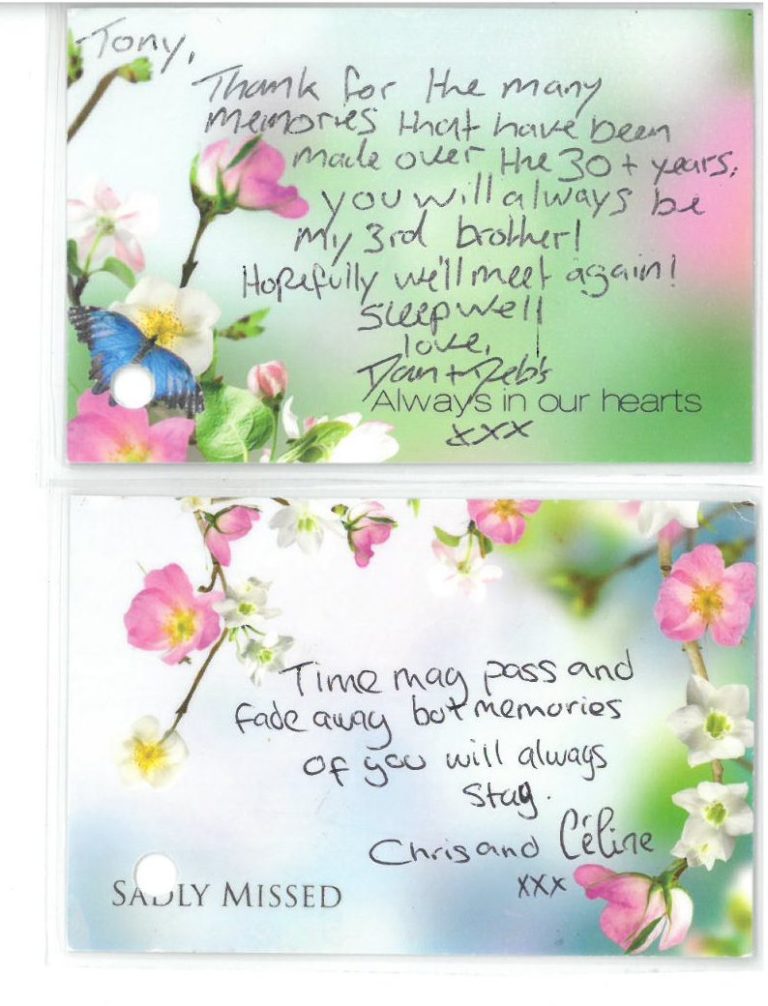 Tony,
Thank for the many
memories that have been
made over the 30+ years,
you will always be
my 3rd brother!
Hopefully we'll meet again!
Sleep well
love,
Dan + Deb's
Always in our hearts
xxx
Time may pass and
fade away but memories
of you will always
stay.
Chris and Céline
xxx
SADLY MISSED